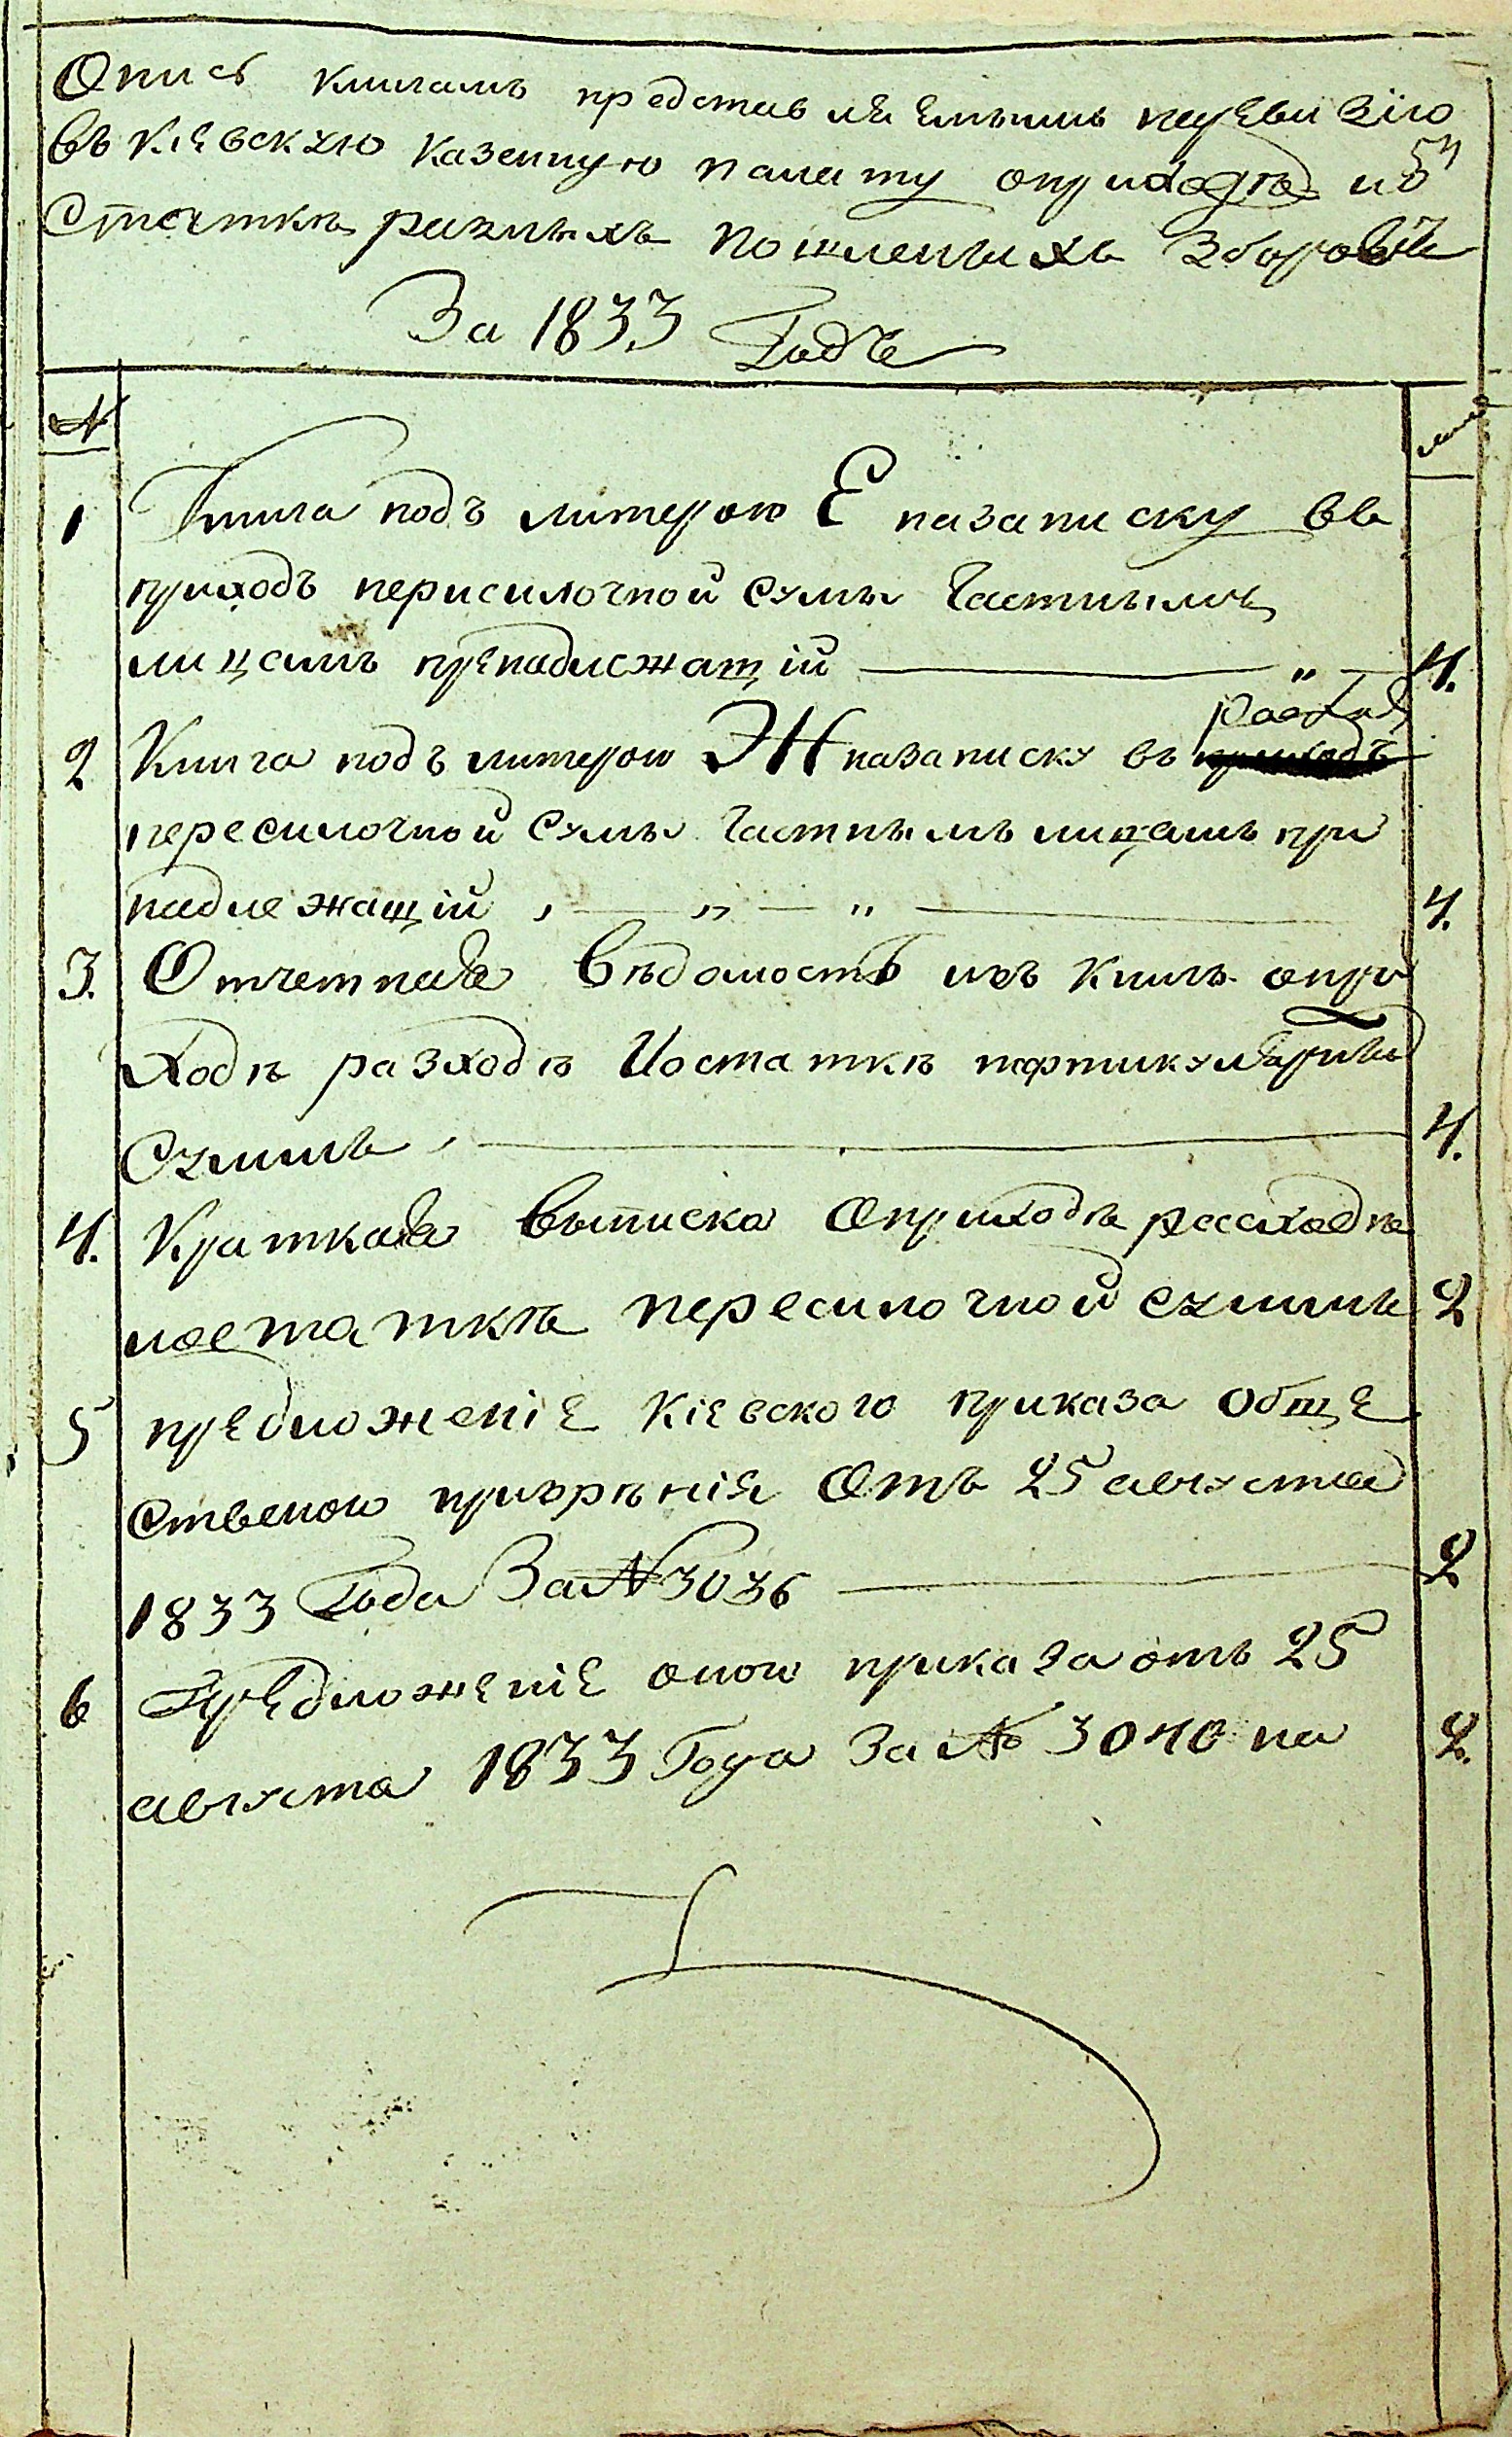 Опись книгамъ представляемымъ наревизїю
въ Кіевскую казенную палату оприходѣ ио
Статкѣ разныхъ пошленыхъ Зборовъ
За 1833 Годъ
№ листы
1 Книга подъ литерою Е назаписку въ
приходъ пересилочной сумы Частнымъ
лицамъ пренадлежащій — " — 4.
расходъ
2 Книга подъ литерою Ж назаписку въ приходъ
пересилочной сумы Частнымъ лицамъ при
надлежащій , — " — " — 4.
3. Отчетная Вѣдомость изъ книгъ опри
ходѣ разходѣ Иостаткѣ партикулярный
Суммѣ , — 4.
4. Краткая Выписка Оприходѣ расходѣ
иостаткѣ пересилочной суммѣ 2
5 предложеніЕ Кіевского приказа общЕ
ственого призрѣнія Отъ 25 августа
1833 Года За № 3036 — 2
6 ПрЕдложЕніЕ оного приказа отъ 25
августа 1833 Года За № 3040 на 2.